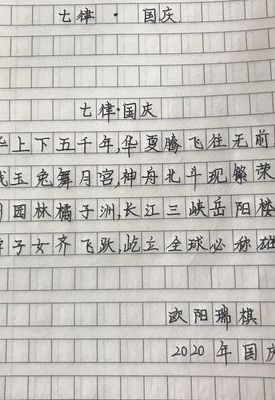 七律·国庆
七律·国庆
上下五千年,华夏腾飞往无前
玉兔舞月宫,神舟北斗现繁荣
园林橘子洲,长江三峡岳阳楼
子女齐飞跃,屹立全球必称雄
欧阳瑞棋
2020年国庆